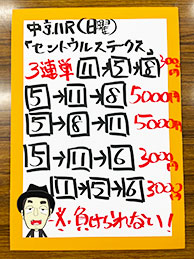 中京11R(日曜)
「セントウルステークス」
3連単 11→5→8 3000円
5→11→8 5000円
5→8→11 5000円
15→11→6 3000円
11→5→6 3000円
必.負けられない!